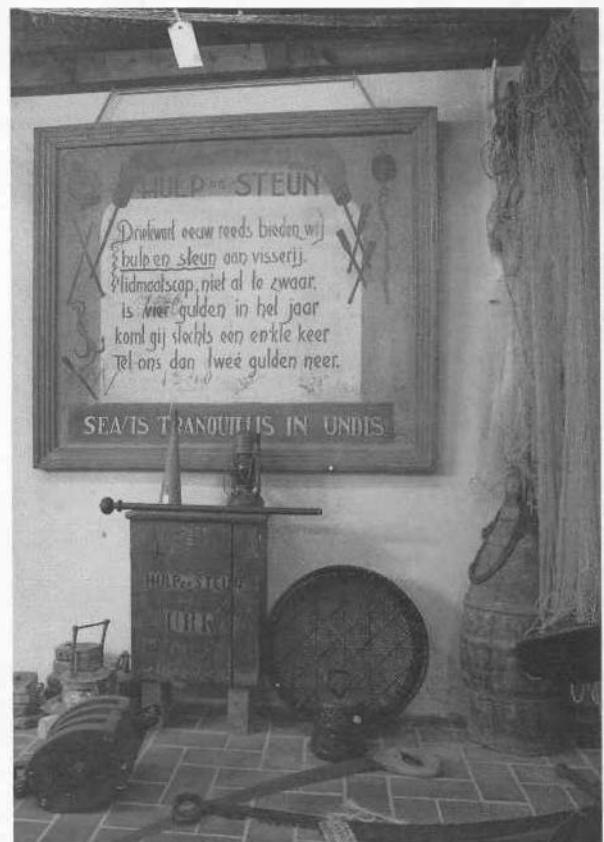 HULP en STEUN
Driekwart eeuw reeds bieden wij
hulp en steun aan visserij.
lidmaatscap, niet al te zwaar,
is vier gulden in het jaar
komt gij slechts een enkle keer
Tel ons dan tweé gulden neer.
SEAVIS TRANQUILLIS IN UNDIS
HULP en STEUN
URK